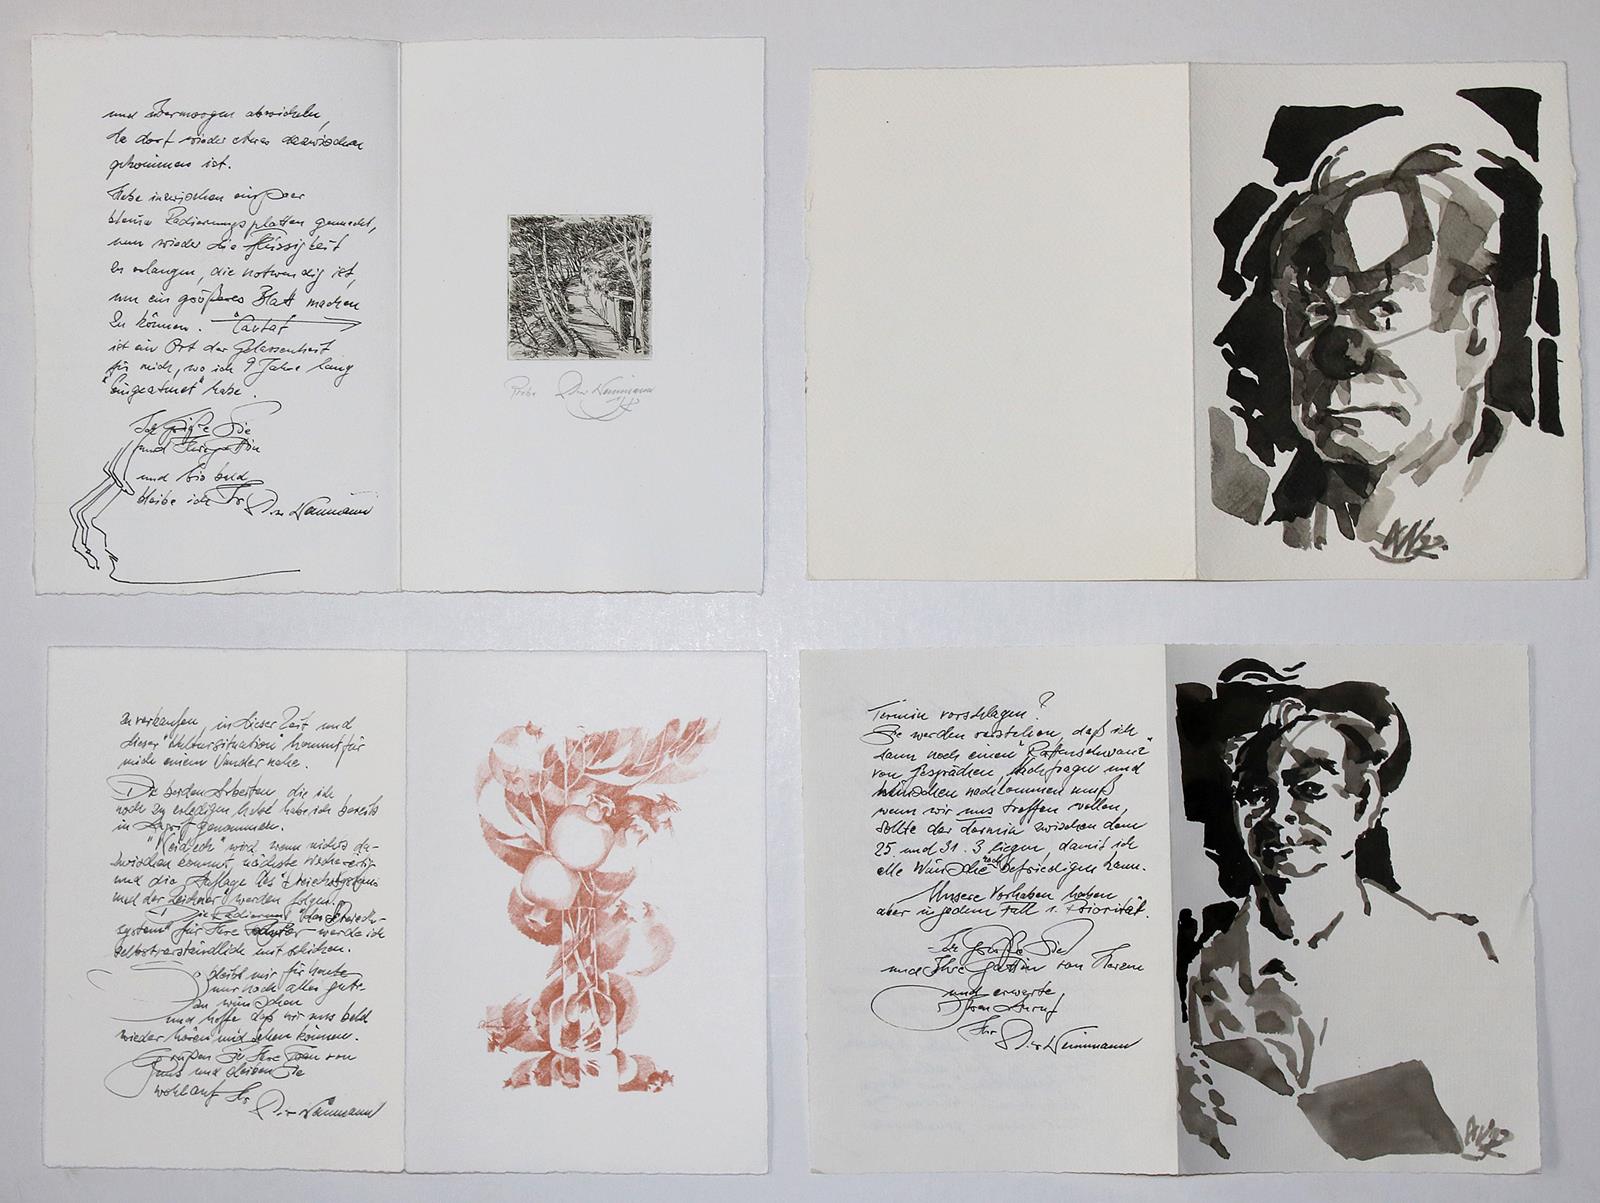 und übermorgen abwickeln,
da dort wieder etwas dazwischen
gekommen ist.
Habe inzwischen ein paar
kleine Radierungsplatten gemacht,
um wieder die Flüssigkeit
zu erlangen, die notwendig ist,
um ein größeres Blatt machen
zu können.
ist ein Ort der Gelassenheit
für mich, wo ich 9 Jahre lang
"eingeatmet" habe.
Ich grüße Sie
und Ihre Gattin
und bis bald
bleibe ich Ihr
Probe
zu verkaufen, in dieser Zeit und
dieser "Kultursituation" kommt für
mich einem Wunder nahe.
Die beiden Arbeiten die ich
noch zu erledigen habe habe ich bereits
in Angriff genommen.
wird wenn nichts da-
zwischen kommt, nächste Woche
und die Auflage des
und der Zeichner" werden folgen.
Die Radierung
system" für Ihre werde ich
selbstverständlich mitschicken.
bleibt mir für heute
nur noch alles gute
zu wünschen
und hoffe daß wir uns bald
wieder hören und sehen können.
Grüßen Sie Ihre Frau von
uns und bleiben Sie
wohlauf Ihr
Termin vorschlagen?
Sie werden verstehen, daß ich
dann noch einen "Rattenschwanz"
von Gesprächen, Nachfragen und
Wünschen nachkommen muß
wenn wir uns treffen wollen,
sollte der Termin zwischen dem
25. und 31. 3 liegen, damit ich
alle Wünsche noch befriedigen kann.
Unsere Vorhaben haben
aber in jedem Fall 1. Priorität.
Ich grüße Sie
und Ihre Gattin von Herzen
und erwarte
Ihren Anruf
Ihr